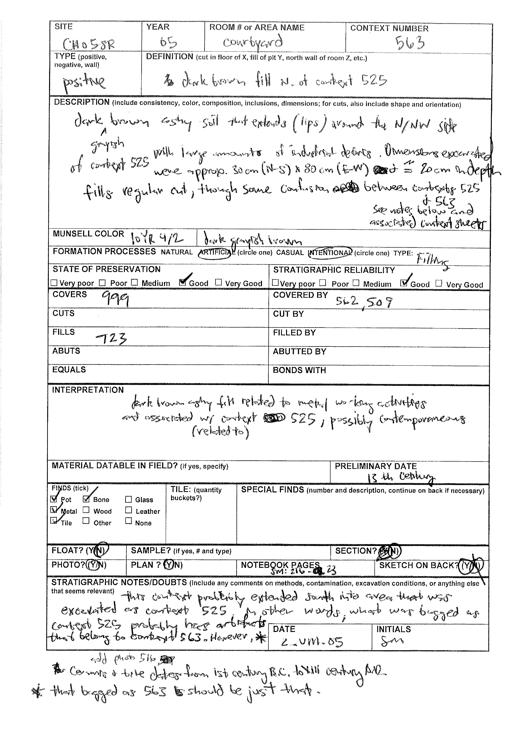 SITE YEAR ROOM # or AREA NAME CONTEXT NUMBER
CHO5SR 05 courtyard 563
TYPE (positive, negative, wall) DEFINITION (cut in floor of X, fill of pit Y, north wall of room Z, etc.)
positive dark brown fill N. of context 525
DESCRIPTION (include consistency, color, composition, inclusions, dimensions; for cuts, also include shape and orientation)
dark brown ashy soil that extends (lips) around the N/NW side
grayish
of context 525 with large amounts of industrial debris. Dimensions excavated
were approx. 30 cm (N-S) x 80 cm (E-W) ≈ 20 cm in depth
fills regular cut, though some confusion between contexts 525
& 563
see notes below and
associated context sheets
MUNSELL COLOR 10YR 4/2 dark grayish brown
FORMATION PROCESSES NATURAL ARTIFICIAL (circle one) CASUAL INTENTIONAL (circle one) TYPE: Filling
STATE OF PRESERVATION STRATIGRAPHIC RELIABILITY
Very poor Poor Medium Good Very Good Very poor Poor Medium Good Very Good
COVERS 999 COVERED BY 562, 509
CUTS CUT BY
FILLS 723 FILLED BY
ABUTS ABUTTED BY
EQUALS BONDS WITH
INTERPRETATION
dark brown ashy fill related to metal working activities
and associated w/ context 525, possibly contemporaneous
(related to)
MATERIAL DATABLE IN FIELD? (if yes, specify) PRELIMINARY DATE
13th century
FINDS (tick) TILE: (quantity buckets?) SPECIAL FINDS (number and description, continue on back if necessary)
Pot Bone Glass
Metal Wood Leather
Tile Other None
FLOAT? (Y/N) SAMPLE? (if yes, # and type) SECTION? (Y/N)
PHOTO? (Y/N) PLAN? (Y/N) NOTEBOOK PAGES SM: 216- 23 SKETCH ON BACK? (Y/N)
STRATIGRAPHIC NOTES/DOUBTS (Include any comments on methods, contamination, excavation conditions, or anything else that seems relevant)
This context probably extended south into area that was
excavated as context 525. In other words, what was bagged as
context 525 probably has artifacts
that belong to context 563. However, *
DATE INITIALS
2-VIII-05 SM
add photo 516
Ceramic & tile dates from 1st century B.C. to XIII century A.D.
* that bagged as 563 should be just that.